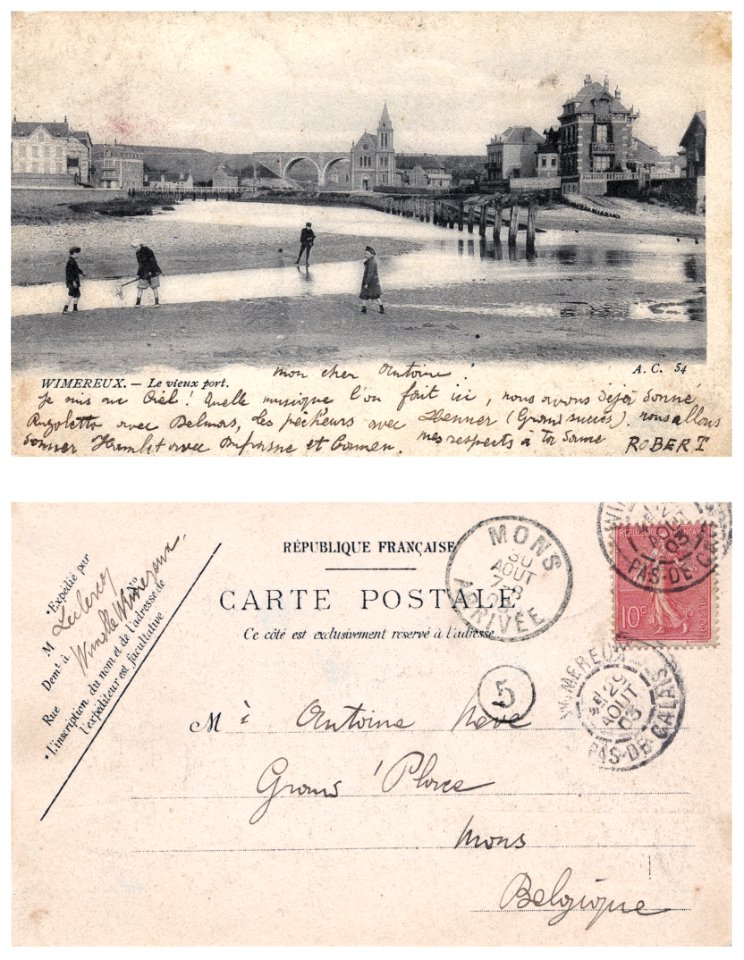 mon cher Antoine!
WIMEREUX. — Le vieux port.
A. C. 54
Je suis au Ciel! Quelle musique l'on fait ici, nous avons déjà donné
Rigoletto avec Delmas, les pêcheurs avec Henner (Grand succès). nous allons
donner Hamlet avec Dufrasne et Carmen. mes respects à ta Dame ROBERT
RÉPUBLIQUE FRANÇAISE
CARTE POSTALE
Ce côté est exclusivement réservé à l'adresse
Expédié par
M Leclercq
Demt à Wimille Wimereux.
Rue N°
L'inscription du nom et de l'adresse de
l'expéditeur est facultative
MONS
30
AOUT
7-8
ARRIVÉE
29
AOUT
03
PAS-DE-CALAIS
10c
POSTES
5
WIMEREUX
29
AOUT
03
PAS-DE-CALAIS
Mr Antoine Neve
Grand 'Place
Mons
Belgique